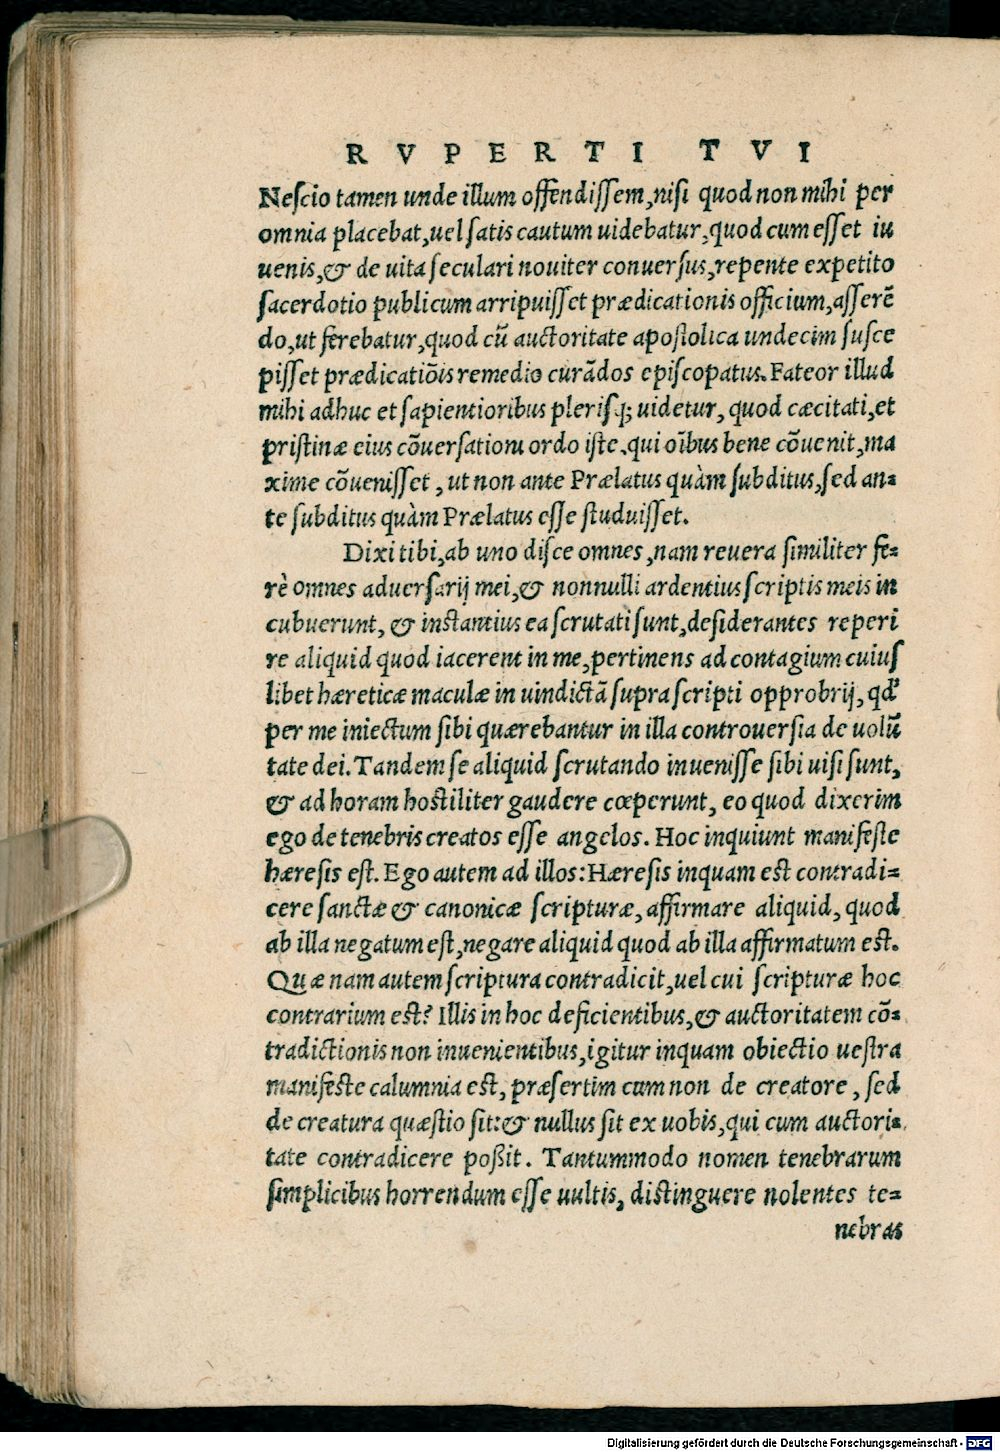 RVPERTI TVI
Nescio tamen unde illum offendissem, nisi quod non mihi per
omnia placebat, uel satis cautum uidebatur, quod cum esset iu
uenis, & de uita seculari nouiter conuersus, repente expetito
sacerdotio publicum arripuisset prædicationis officium, asserē
do, ut ferebatur, quod cū auctoritate apostolica undecim susce
pisset prædicatiōis remedio curādos episcopatus. Fateor illud
mihi adhuc et sapientioribus plerisq; uidetur, quod cæcitati, et
pristinæ eius cōuersationi ordo iste, qui oībus bene cōuenit, ma
xime cōuenisset, ut non ante Prælatus quàm subditus, sed an-
te subditus quàm Prælatus esse studuisset.
Dixi tibi, ab uno disce omnes, nam reuera similiter fe-
rè omnes aduersarij mei, & nonnulli ardentius scriptis meis in
cubuerunt, & instantius ea scrutati sunt, desiderantes reperi
re aliquid quod iacerent in me, pertinens ad contagium cuius
libet hæreticæ maculæ in uindictā suprascripti opprobrij, qd'
per me iniectum sibi quærebantur in illa controuersia de uolū
tate dei. Tandem se aliquid scrutando inuenisse sibi uisi sunt,
& ad horam hostiliter gaudere cœperunt, eo quod dixerim
ego de tenebris creatos esse angelos. Hoc inquiunt manifeste
hæresis est. Ego autem ad illos: Hæresis inquam est contradi-
cere sanctæ & canonicæ scripturæ, affirmare aliquid, quod
ab illa negatum est, negare aliquid quod ab illa affirmatum est.
Quæ nam autem scriptura contradicit, uel cui scripturæ hoc
contrarium est? Illis in hoc deficientibus, & auctoritatem cō-
tradictionis non inuenientibus, igitur inquam obiectio uestra
manifeste calumnia est, præsertim cum non de creatore, sed
de creatura quæstio sit: & nullus sit ex uobis, qui cum auctori-
tate contradicere poßit. Tantummodo nomen tenebrarum
simplicibus horrendum esse uultis, distinguere nolentes te-
nebras
Digitalisierung gefördert durch die Deutsche Forschungsgemeinschaft - DFG